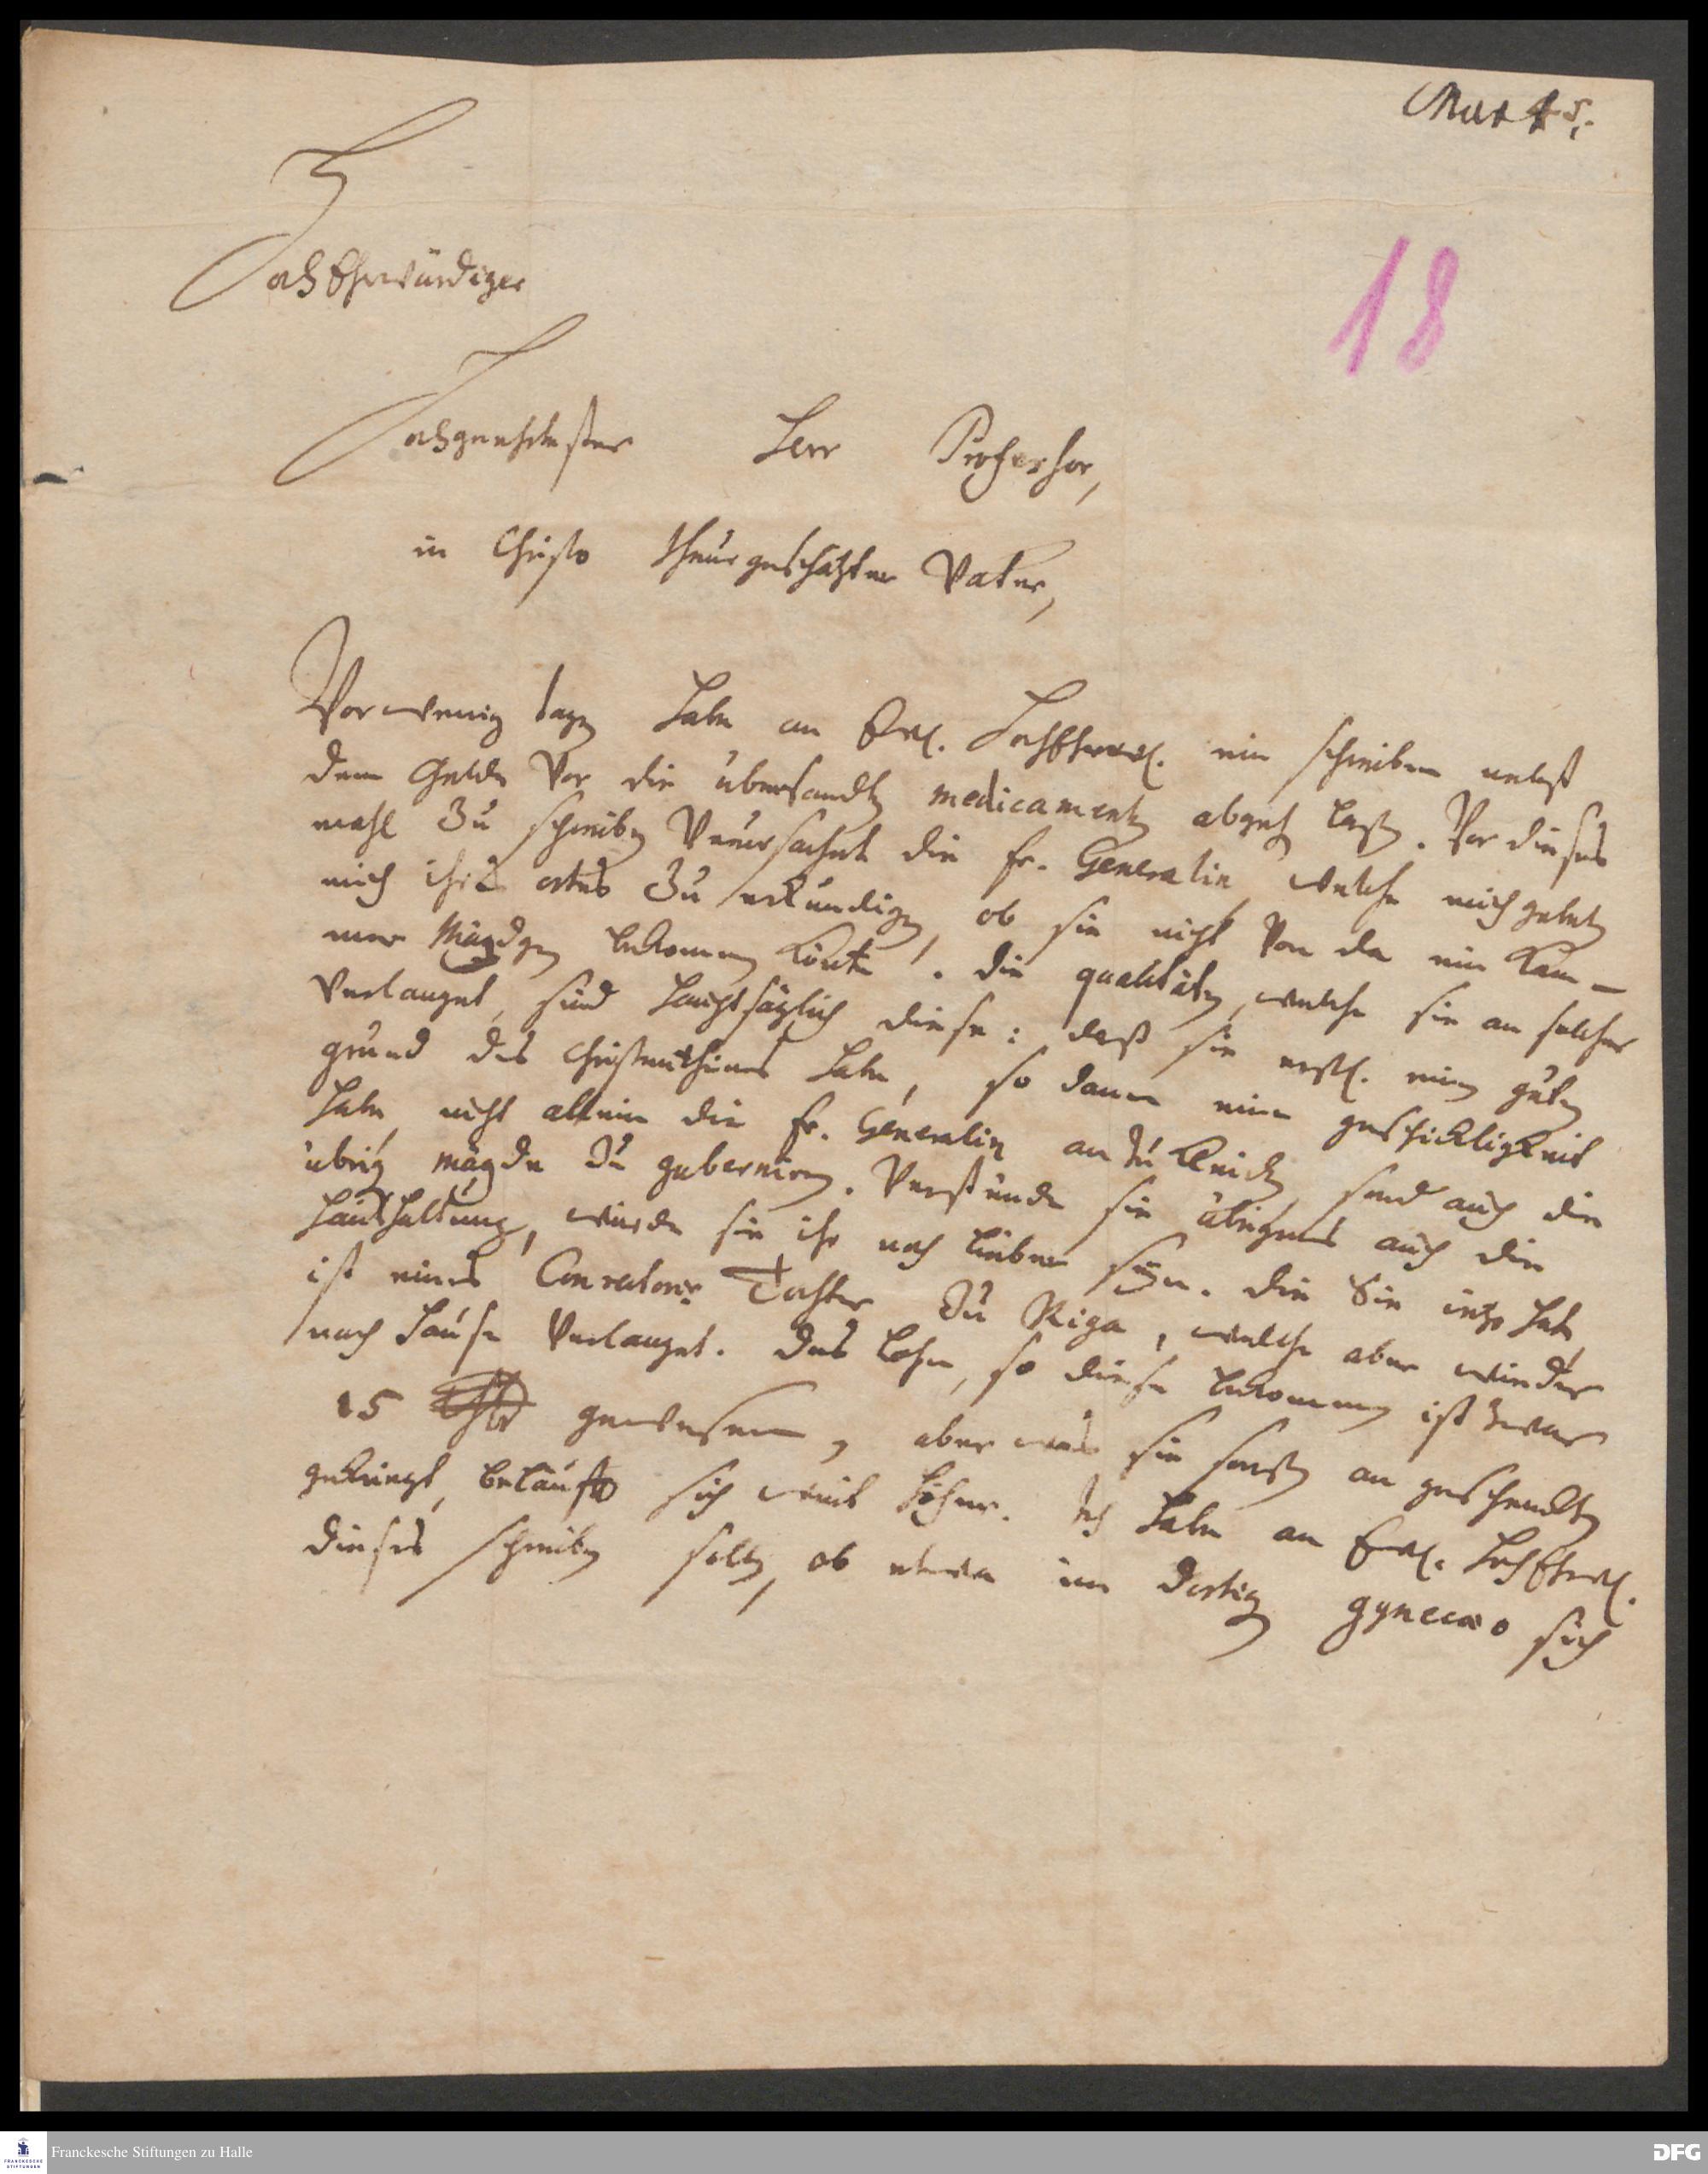 18
HochEhrwürdiger
Hochgeehrtester Herr Professor,
in Christo theur geschätzter Vater,
Vor wenig tagen habe an Ew. HochEhrw. ein schreiben nebst
dem Gelde vor die übersandten medicamenten abgehen laßen. Vor dieses
mahl zu schreiben veruhrsachet die fr. Generalin, welche mich gebeten
mich ihres ortes zu erkundigen, ob sie nicht von da ein Kam-
mer Mägdgen bekommen könte. die qualitäten, welche sie an solcher
verlanget, sind hauptsächlich diese: daß sie erstl. einen guten
grund des Christenthums habe, so dann eine geschickligkeit
habe nicht allein die fr. Generalin anzukleiden, sond auch die
übrigen mägde zu gubernieren. Verstünde sie übrigens auch die
haußhaltung, würde sie ihr noch lieber seyn. die Sie ietzo hat,
ist eines Conrectoris Tochter zu Riga, welche aber wieder
nach Hause verlanget. das Lohn, so diese bekommen ist zwar
15 gewesen, aber was sie sonsten an geschencken
gekriegt, beläufft sich weit höher. Ich habe an Ew. HochEhrw.
dieses schreiben sollen, ob etwa im dortigen gynecaeo sich
Franckesche Stiftungen zu Halle
FRANCKESCHE
STIFTUNGEN
DFG